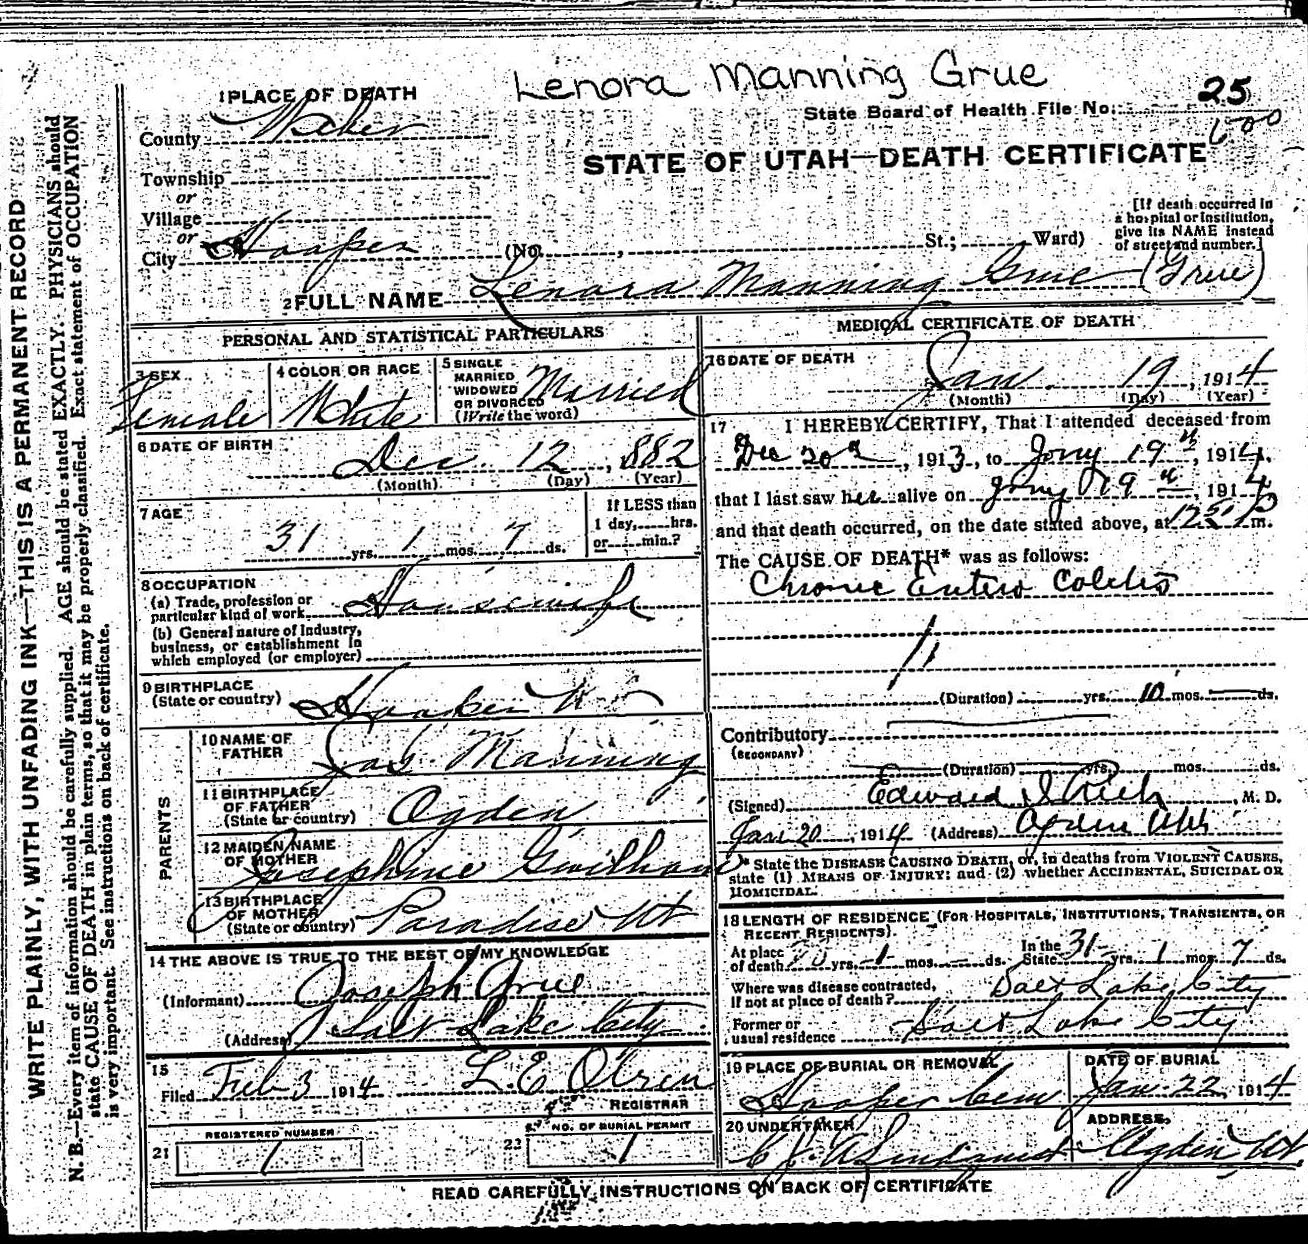 Lenora Manning Grue
25
State Board of Health File No.
600
STATE OF UTAH—DEATH CERTIFICATE
1 PLACE OF DEATH
County Weber
Township
or
Village
or
City Hooper (No. , St.; Ward)
[If death occurred in
a hospital or institution,
give its NAME instead
of street and number.]
2 FULL NAME Lenora Manning Grue (Grue)
PERSONAL AND STATISTICAL PARTICULARS
3 SEX
Female
4 COLOR OR RACE
White
5 SINGLE
MARRIED
WIDOWED
OR DIVORCED
(Write the word)
Married
6 DATE OF BIRTH
Dec. 12, 882
(Month) (Day) (Year)
7 AGE
31 yrs. 1 mos. 7 ds.
If LESS than
1 day, hrs.
or min.?
8 OCCUPATION
(a) Trade, profession or
particular kind of work Housewife
(b) General nature of Industry,
business, or establishment in
which employed (or employer)
9 BIRTHPLACE
(State or country) Hooper Ut
PARENTS
10 NAME OF
FATHER Jas. Manning
11 BIRTHPLACE
OF FATHER
(State or country) Ogden
12 MAIDEN NAME
OF MOTHER Josephine Gwilliam
13 BIRTHPLACE
OF MOTHER
(State or country) Paradise Ut
14 THE ABOVE IS TRUE TO THE BEST OF MY KNOWLEDGE
(Informant) Joseph Grue
(Address) Salt Lake City
15
Filed Feb 3 1914 L. E. Olsen
REGISTRAR
REGISTERED NUMBER
21 1
NO. OF BURIAL PERMIT
23 1
MEDICAL CERTIFICATE OF DEATH
16 DATE OF DEATH
Jan. 19, 1914
(Month) (Day) (Year)
17 I HEREBY CERTIFY, That I attended deceased from
Dec 20, 1913, to Jany 19th, 1914,
that I last saw her alive on Jany 19th, 1914
and that death occurred, on the date stated above, at m.
The CAUSE OF DEATH* was as follows:
Chronic Entero Colitis
(Duration) yrs. 10 mos. ds.
Contributory
(SECONDARY)
(Duration) yrs. mos. ds.
(Signed) Edward I Rich, M. D.
Jan 20, 1914 (Address) Ogden Utah
* State the DISEASE CAUSING DEATH, or, in deaths from VIOLENT CAUSES,
state (1) MEANS OF INJURY; and (2) whether ACCIDENTAL, SUICIDAL OR
HOMICIDAL.
18 LENGTH OF RESIDENCE (FOR HOSPITALS, INSTITUTIONS, TRANSIENTS, OR
RECENT RESIDENTS).
At place
of death yrs. 1 mos. ds. In the
State 31 yrs. 1 mos 7 ds.
Where was disease contracted,
if not at place of death? Salt Lake City
Former or
usual residence Salt Lake City
19 PLACE OF BURIAL OR REMOVAL
Hooper Cem
DATE OF BURIAL
Jan. 22, 1914
20 UNDERTAKER
ADDRESS,
Ogden, Ut.
READ CAREFULLY INSTRUCTIONS ON BACK OF CERTIFICATE
WRITE PLAINLY, WITH UNFADING INK—THIS IS A PERMANENT RECORD
N. B.—Every item of information should be carefully supplied. AGE should be stated EXACTLY. PHYSICIANS should
state CAUSE OF DEATH in plain terms, so that it may be properly classified. Exact statement of OCCUPATION
is very important. See instructions on back of certificate.